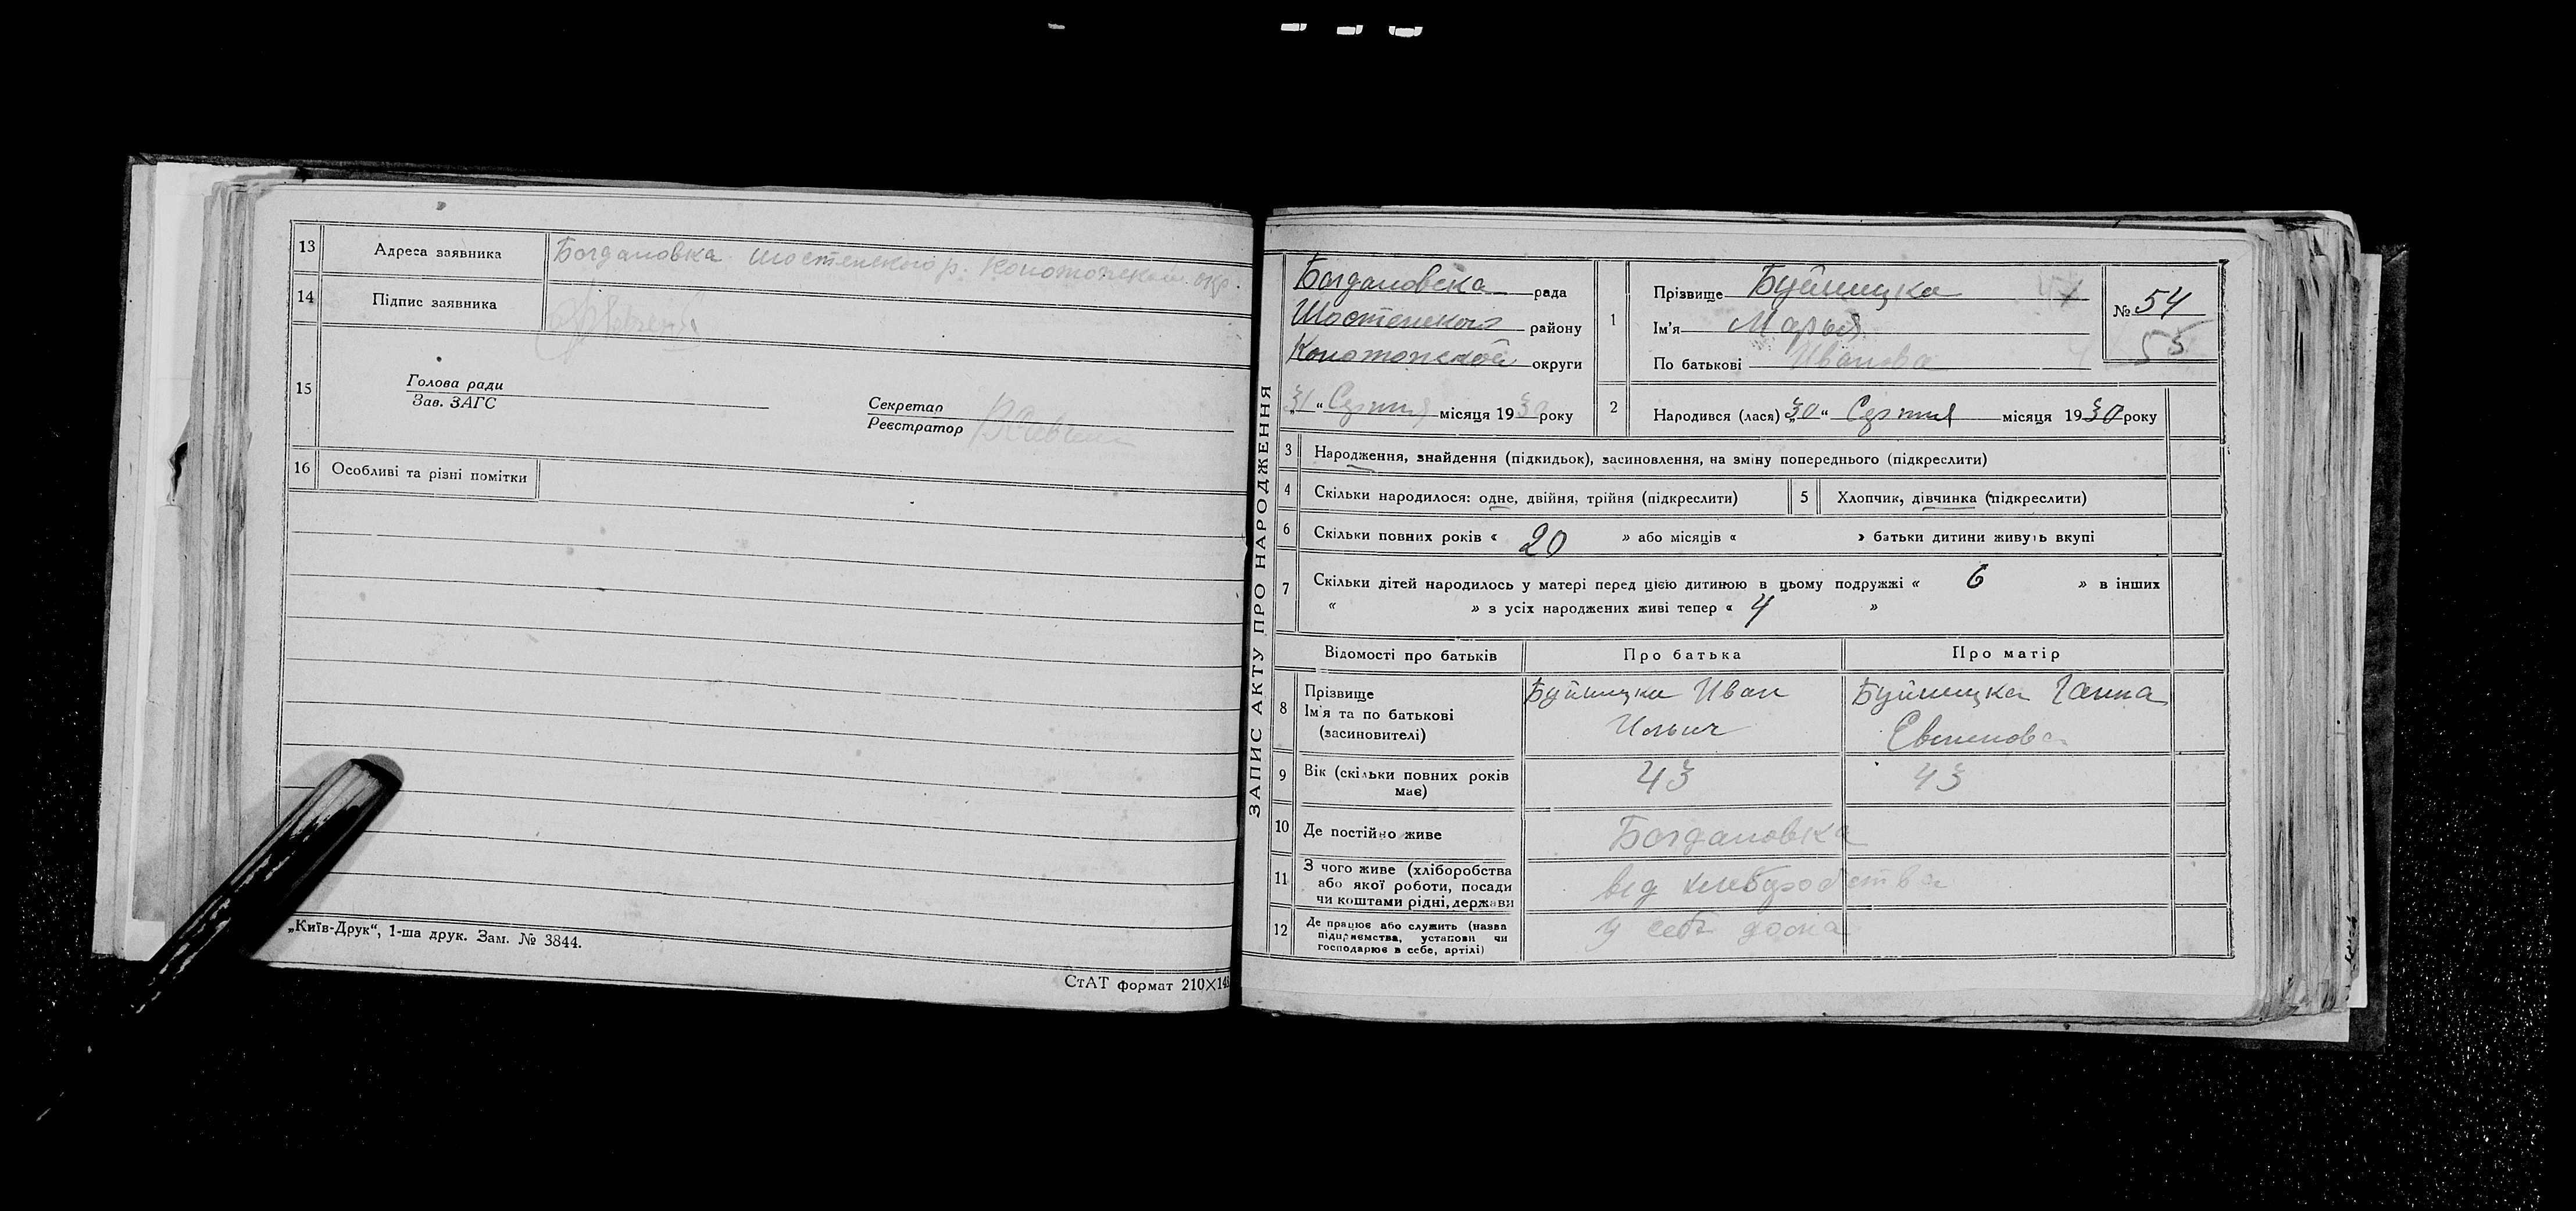 13 Адреса заявника Богдановка Шостенского р. Конотопской окр.
14 Підпис заявника
15 Голова ради
Зав. ЗАГС
Секретар
Реєстратор
16 Особливі та різні помітки
„Київ-Друк“, 1-ша друк. Зам. № 3844.
СтАТ формат 210×148
ЗАПИС АКТУ ПРО НАРОДЖЕННЯ
Богдановска рада
Шостенского району
Конотопской округи
„31“ Серпня місяця 1930 року
1 Прізвище Буйницка
Ім'я Марья
По батькові Иванова
№ 54
55
2 Народився (лася) „30“ Серпня місяця 1930 року
3 Народження, знайдення (підкидьок), засиновлення, на зміну попереднього (підкреслити)
4 Скільки народилося: одне, двійня, трійня (підкреслити)
5 Хлопчик, дівчинка (підкреслити)
6 Скільки повних років « 20 » або місяців « » батьки дитини живуть вкупі
7 Скільки дітей народилось у матері перед цією дитиною в цьому подружжі « 6 » в інших
« » з усіх народжених живі тепер « 4 »
Відомості про батьків Про батька Про матір
8 Прізвище
Ім'я та по батькові
(засиновителі)
Буйницки Иван
Ильич
Буйницка Ганна
9 Вік (скільки повних років
має)
43 43
10 Де постійно живе Богдановка
11 З чого живе (хліборобства
або якої роботи, посади
чи коштами рідні, держави
від хлебуробства
12 Де працює або служить (назва
підприємства, установи чи
господарює в себе, артілі)
у себе дома